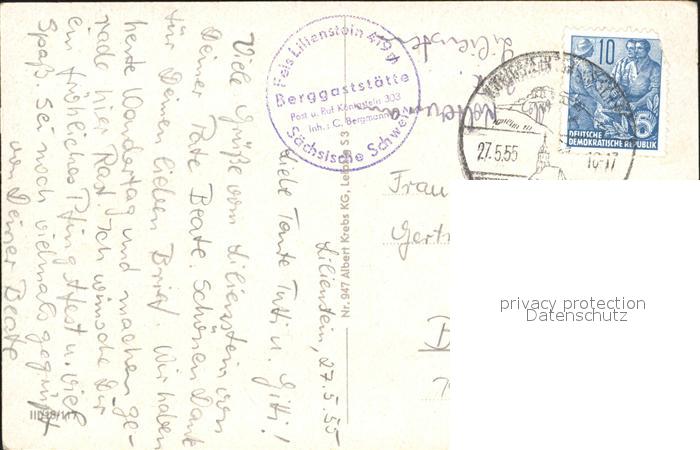 Lilienstein, 27.5.55
Liebe Tante Tutti u. Gitti!
Viele Grüße vom Lilienstein von
Deiner Beate. Schönen Dank
für Deinen lieben Brief. Wir haben
heute Wandertag und machen ge-
rade hier Rast. Ich wünsche Dir
ein fröhliches Pfingstfest u. viel
Spaß. Sei noch vielmals gegrüßt
von Deiner Beate
III/18/117
Nr. 947 Albert Krebs KG, Leipzig S 3
Fels Lilienstein 419
Berggaststätte
Post u. Ruf Königstein 303
Inh.: C. Bergmann
Sächsische Schweiz
Lilienstein
10
DEUTSCHE
DEMOKRATISCHE REPUBLIK
27.5.55
Frau
Gert
privacy protection
Datenschutz